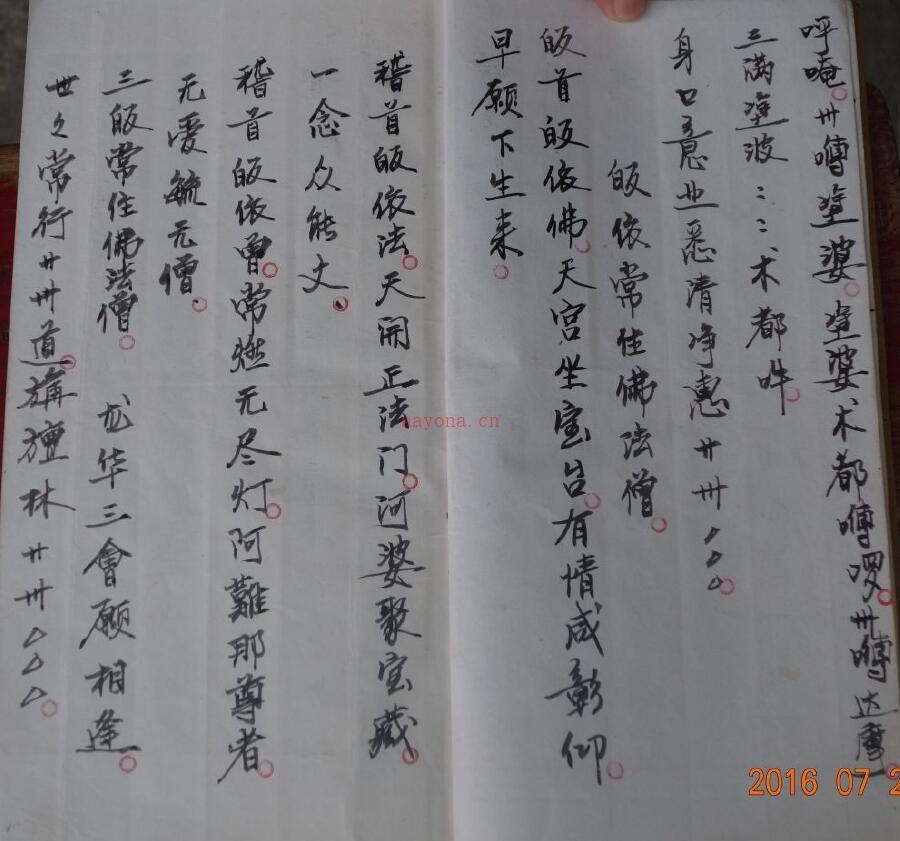 呼唵卅嚩塗婆塗婆术都嚩啰卅嚩达摩
三满塗波三三术都吽
身口意业悉清净惠卄卅
皈依常住佛法僧
皈首皈依佛天宫坐宝台有情咸彰仰
早愿下生来
稽首皈依法天開正法门河婆聚宝藏
一念众能丈
稽首皈依曾常燃无尽灯阿難那尊者
无爱毓元僧
三皈常住佛法僧 龙华三會願相逢
世々常行卄卅道旃檀林卄卅△△△
nayona.cn
2016 07 2